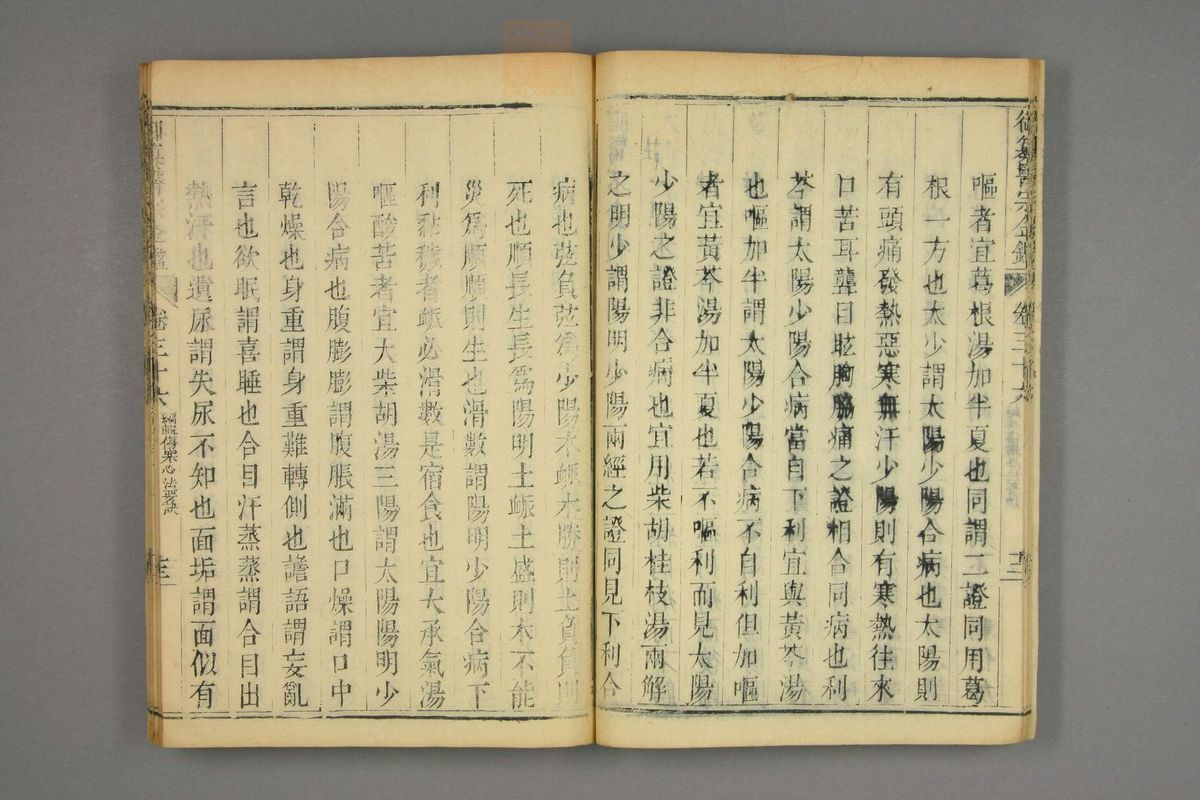 御纂醫宗金鑑 卷三十六 編輯傷寒心法要訣
嘔者宜葛根湯加半夏也同謂二證同用葛
根一方也太少謂太陽少陽合病也太陽則
有頭痛發熱惡寒無汗少陽則有寒熱往來
口苦耳聾目眩胸脇痛之證相合同病也利
芩謂太陽少陽合病當自下利宜與黃芩湯
也嘔加半謂太陽少陽合病不自利但加嘔
者宜黃芩湯加半夏也若不嘔利而見太陽
少陽之證非合病也宜用柴胡桂枝湯兩解
之明少謂陽明少陽兩經之證同見下利合
病也弦負弦為少陽木衇木勝則土負負則
死也順長生長為陽明土衇土盛則木不能
災為順順則生也滑數謂陽明少陽合病下
利黏穢者衇必滑數是宿食也宜大承氣湯
嘔酸苦者宜大柴胡湯三陽謂太陽陽明少
陽合病也腹膨膨謂腹脹滿也口燥謂口中
乾燥也身重謂身重難轉側也譫語謂妄亂
言也欲眠謂喜睡也合目汗蒸蒸謂合目出
熱汗也遺尿謂失尿不知也面垢謂面似有
御纂醫宗金鑑 卷三十六 編輯傷寒心法要訣